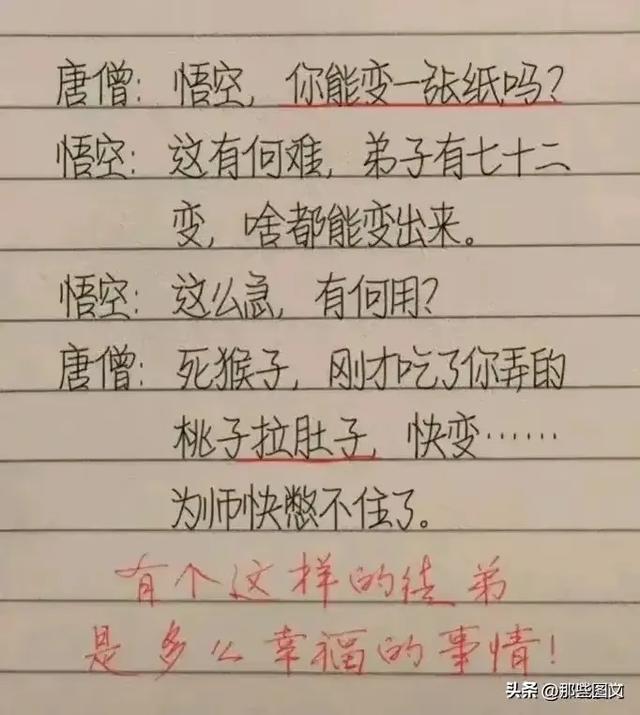 唐僧：悟空，你能变一张纸吗？
悟空：这有何难，弟子有七十二
变，啥都能变出来。
悟空：这么急，有何用？
唐僧：死猴子，刚才吃了你弄的
桃子拉肚子，快变……
为师快憋不住了。
有个这样的徒弟
是多么幸福的事情！
头条 @那些图文